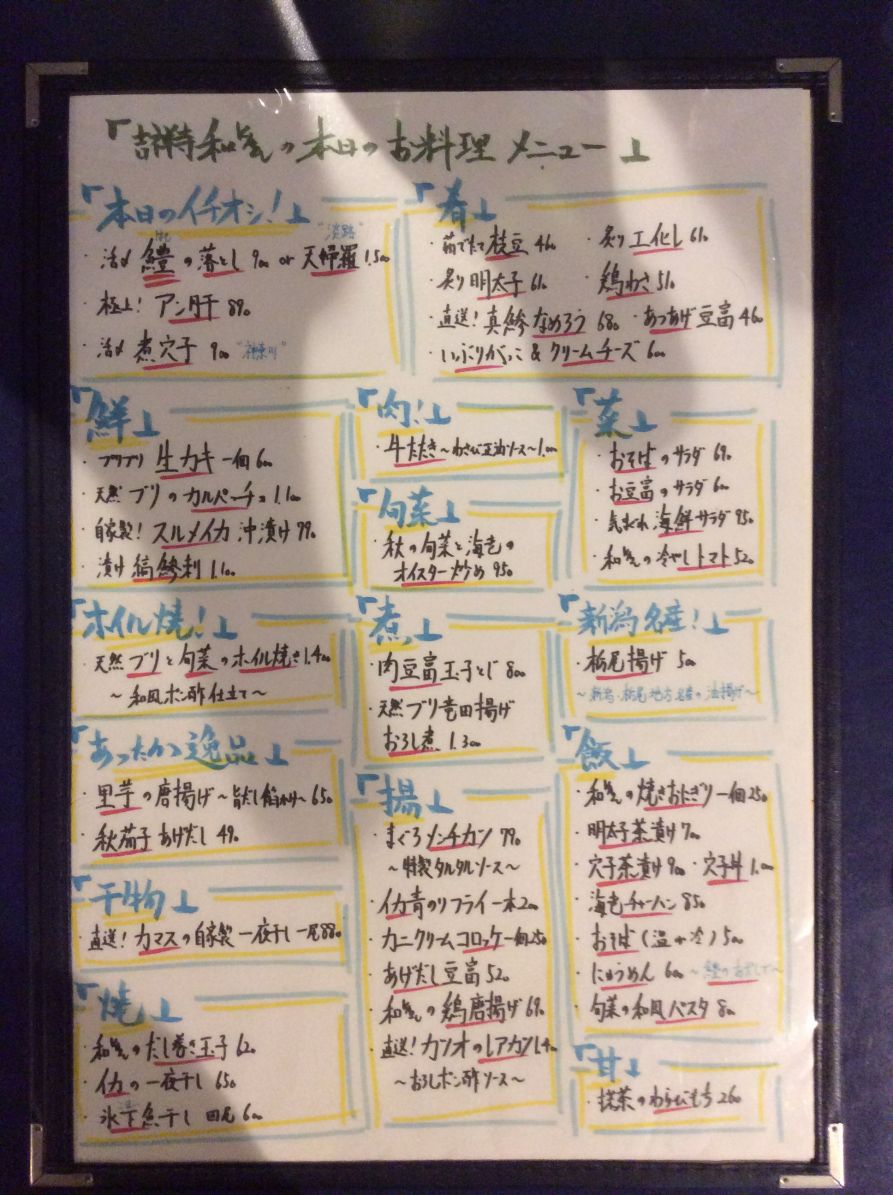 「吉祥寺 和さんの本日のお料理メニュー」
「本日のイチオシ!」
"淡路"
・活〆 鱧の落とし 900 or 天婦羅 1.500
・極上! アン肝 890
・活〆 煮穴子 900 "神奈川"
「肴」
・茹でたて枝豆 460
・炙り エイヒレ 610
・炙り明太子 610
・鶏わさ 510
・直送! 真鯵なめろう 680
・あつあげ豆富 460
・いぶりがっこ & クリームチーズ 600
「鮮」
・プリプリ 生カキ 一個 600
・天然ブリのカルパーチョ 1.100
・自家製! スルメイカ 沖漬け 790
・漬け 縞鯵刺 1.100
「肉!」
・牛たたき〜わさび正油ソース〜 1.000
「旬菜」
・秋の旬菜と海老の
オイスター炒め 950
「菜」
・おそばのサラダ 690
・お豆富のサラダ 600
・気まぐれ 海鮮サラダ 950
・和さんの冷やしトマト 520
「ホイル焼!」
・天然ブリと旬菜のホイル焼き 1.400
〜和風ポン酢仕立て〜
「煮」
・肉豆富玉子とじ 800
・天然ブリ竜田揚げ
おろし煮 1.300
「新潟名産!」
・栃尾揚げ 500
〜新潟・栃尾地方名産の油揚げ〜
「あったか逸品」
・里芋の唐揚げ〜旨だし餡かけ〜 650
・秋茄子あげだし 490
「干物」
・直送! カマスの自家製 一夜干し 一尾 880
「焼」
・和さんのだし巻き玉子 620
・イカの一夜干し 650
・氷下魚干し 四尾 600
「揚」
・まぐろメンチカツ 790
〜特製タルタルソース〜
・イカ青のりフライ 一本 200
・カニクリームコロッケ 一個 250
・あげだし豆富 520
・和さんの鶏唐揚げ 690
・直送! カツオのレアカツ 1.400
〜おろしポン酢ソース〜
「飯」
・和さんの焼きおにぎり 一個 250
・明太子茶漬け 700
・穴子茶漬け 900 ・穴子丼 1.100
・海老チャーハン 850
・おそば(温or冷) 500
・にゅうめん 600
・旬菜の和風パスタ 800
「甘」
・抹茶のわらびもち 260